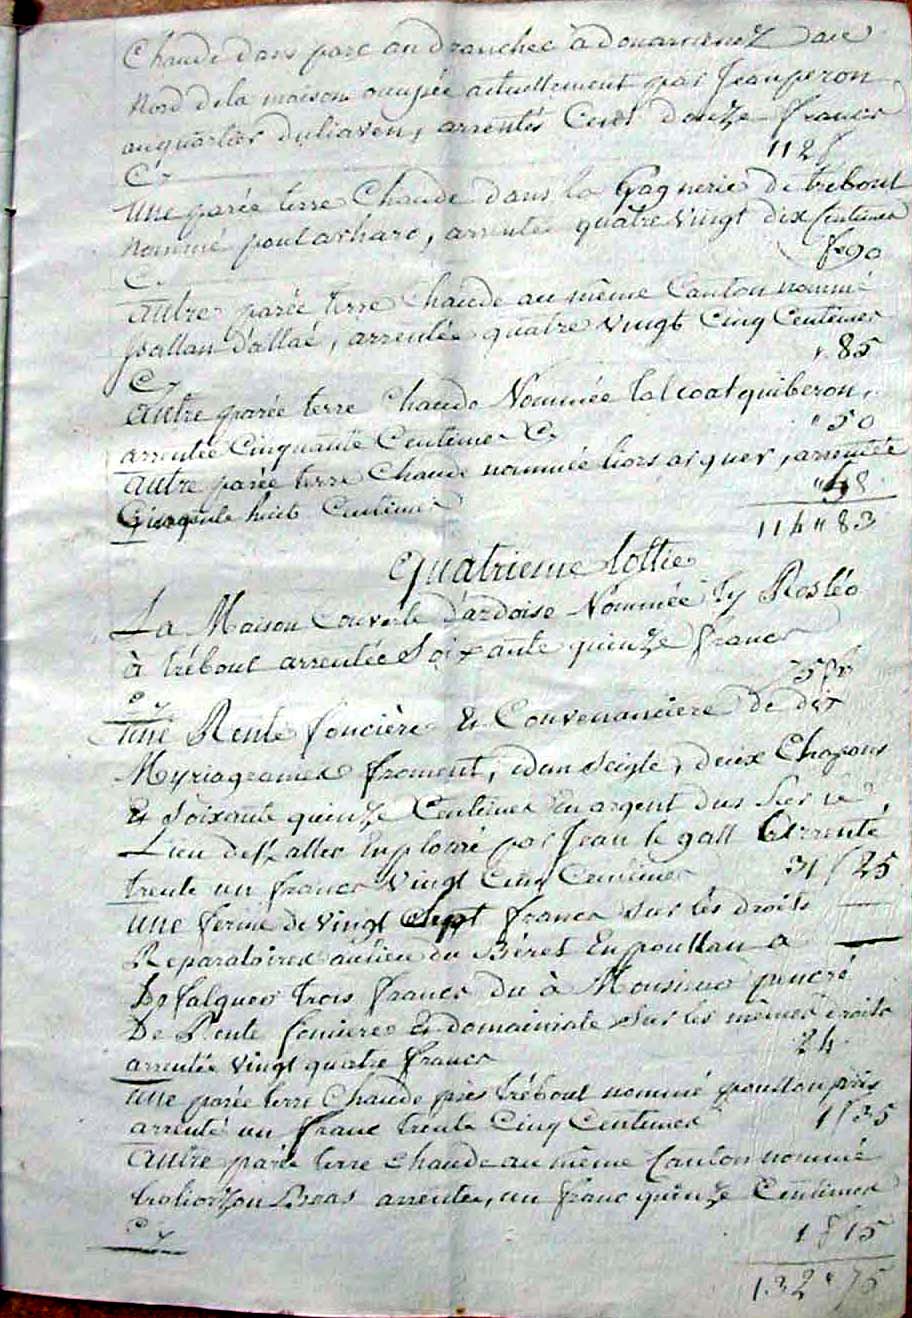 Chaude dans parc an Dranchec à Douarnenez Dau
Nord dela maison ocupée actuellement par Jean peron
auquartier duliaven, arrentés Cent Douze francs
112 f
C.
une parée terre Chaude dans la Gagnerie de trebout
nommé poul arharo, arrentée quatre vingt dix Centimes
f "90
C.
autre parée terre Chaude au même Canton nommé
, arrentée quatre vingt Cinq Centimes
" 85
C.
autre parée terre Chaude Nommée tal coat quiberon,
" 50
arrentée Cinquante Centimes C.
autre parée terre Chaude nommée liors arguer, arrentée
" 48
huit Centimes
114 " 83
quatrieme lottie
La Maison Couverte d'ardoise Nommée Ty Rosléo
à trébout arrentée Soixante quinze francs
75 f "
C.
une Rente foncière Et Convenanciere de dix
Myriagrames froment, idan seigle, deux Chapons
Et Soixante quinze Centimes En argent dus Sur le
Lieu de Enploaré par Jean le gall arrenté
trente un francs vingt Cinq Centimes 31 f 25
une ferme de vingt Sept francs sur les droits
Reparatoires aulieu du Béret En poullan a
Defalquer trois francs du à Monsieur pencré
De Rente fonciere Et domainiale sur les mêmes droits
arrentée vingt quatre francs 24.
une parée terre Chaude près trébout nommé
arrenté un franc trente Cinq Centimes 1 f 35
autre parée terre chaude au même Canton nommé
Bras arrentée, un franc quinze Centimes
C.
1 f 15
132 " 75